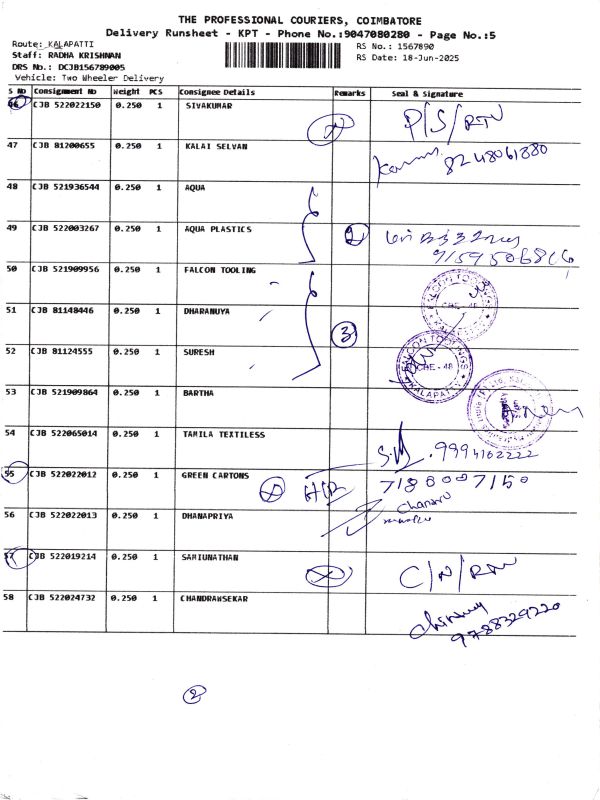 THE PROFESSIONAL COURIERS, COIMBATORE
Delivery Runsheet - KPT - Phone No.:9047080280 - Page No.:5
Route: KALAPATTI
RS No.: 1567890
Staff: RADHA KRISHNAN
RS Date: 18-Jun-2025
DRS No.: DCJB156789005
Vehicle: Two Wheeler Delivery
S No Consignment No Weight PCS Consignee Details Remarks Seal & Signature
46 CJB 522022150 0.250 1 SIVAKUMAR P/S/RTN
47 CJB 81200655 0.250 1 KALAI SELVAN 8248061880
48 CJB 521936544 0.250 1 AQUA
49 CJB 522003267 0.250 1 AQUA PLASTICS 2
50 CJB 521909956 0.250 1 FALCON TOOLING
FALCON TOOLINGS CBE - 48
51 CJB 81148446 0.250 1 DHARANUYA 3
52 CJB 81124555 0.250 1 SURESH
FALCON TOOLINGS CBE - 48 KALAPATTI
53 CJB 521909864 0.250 1 BARTHA
54 CJB 522065014 0.250 1 TAMILA TEXTILESS 9994162222
55 CJB 522022012 0.250 1 GREEN CARTONS 7180007150
56 CJB 522022013 0.250 1 DHANAPRIYA
57 CJB 522019214 0.250 1 SAMIUNATHAN C/N/RTN
58 CJB 522024732 0.250 1 CHANDRAWSEKAR 9788329220
2